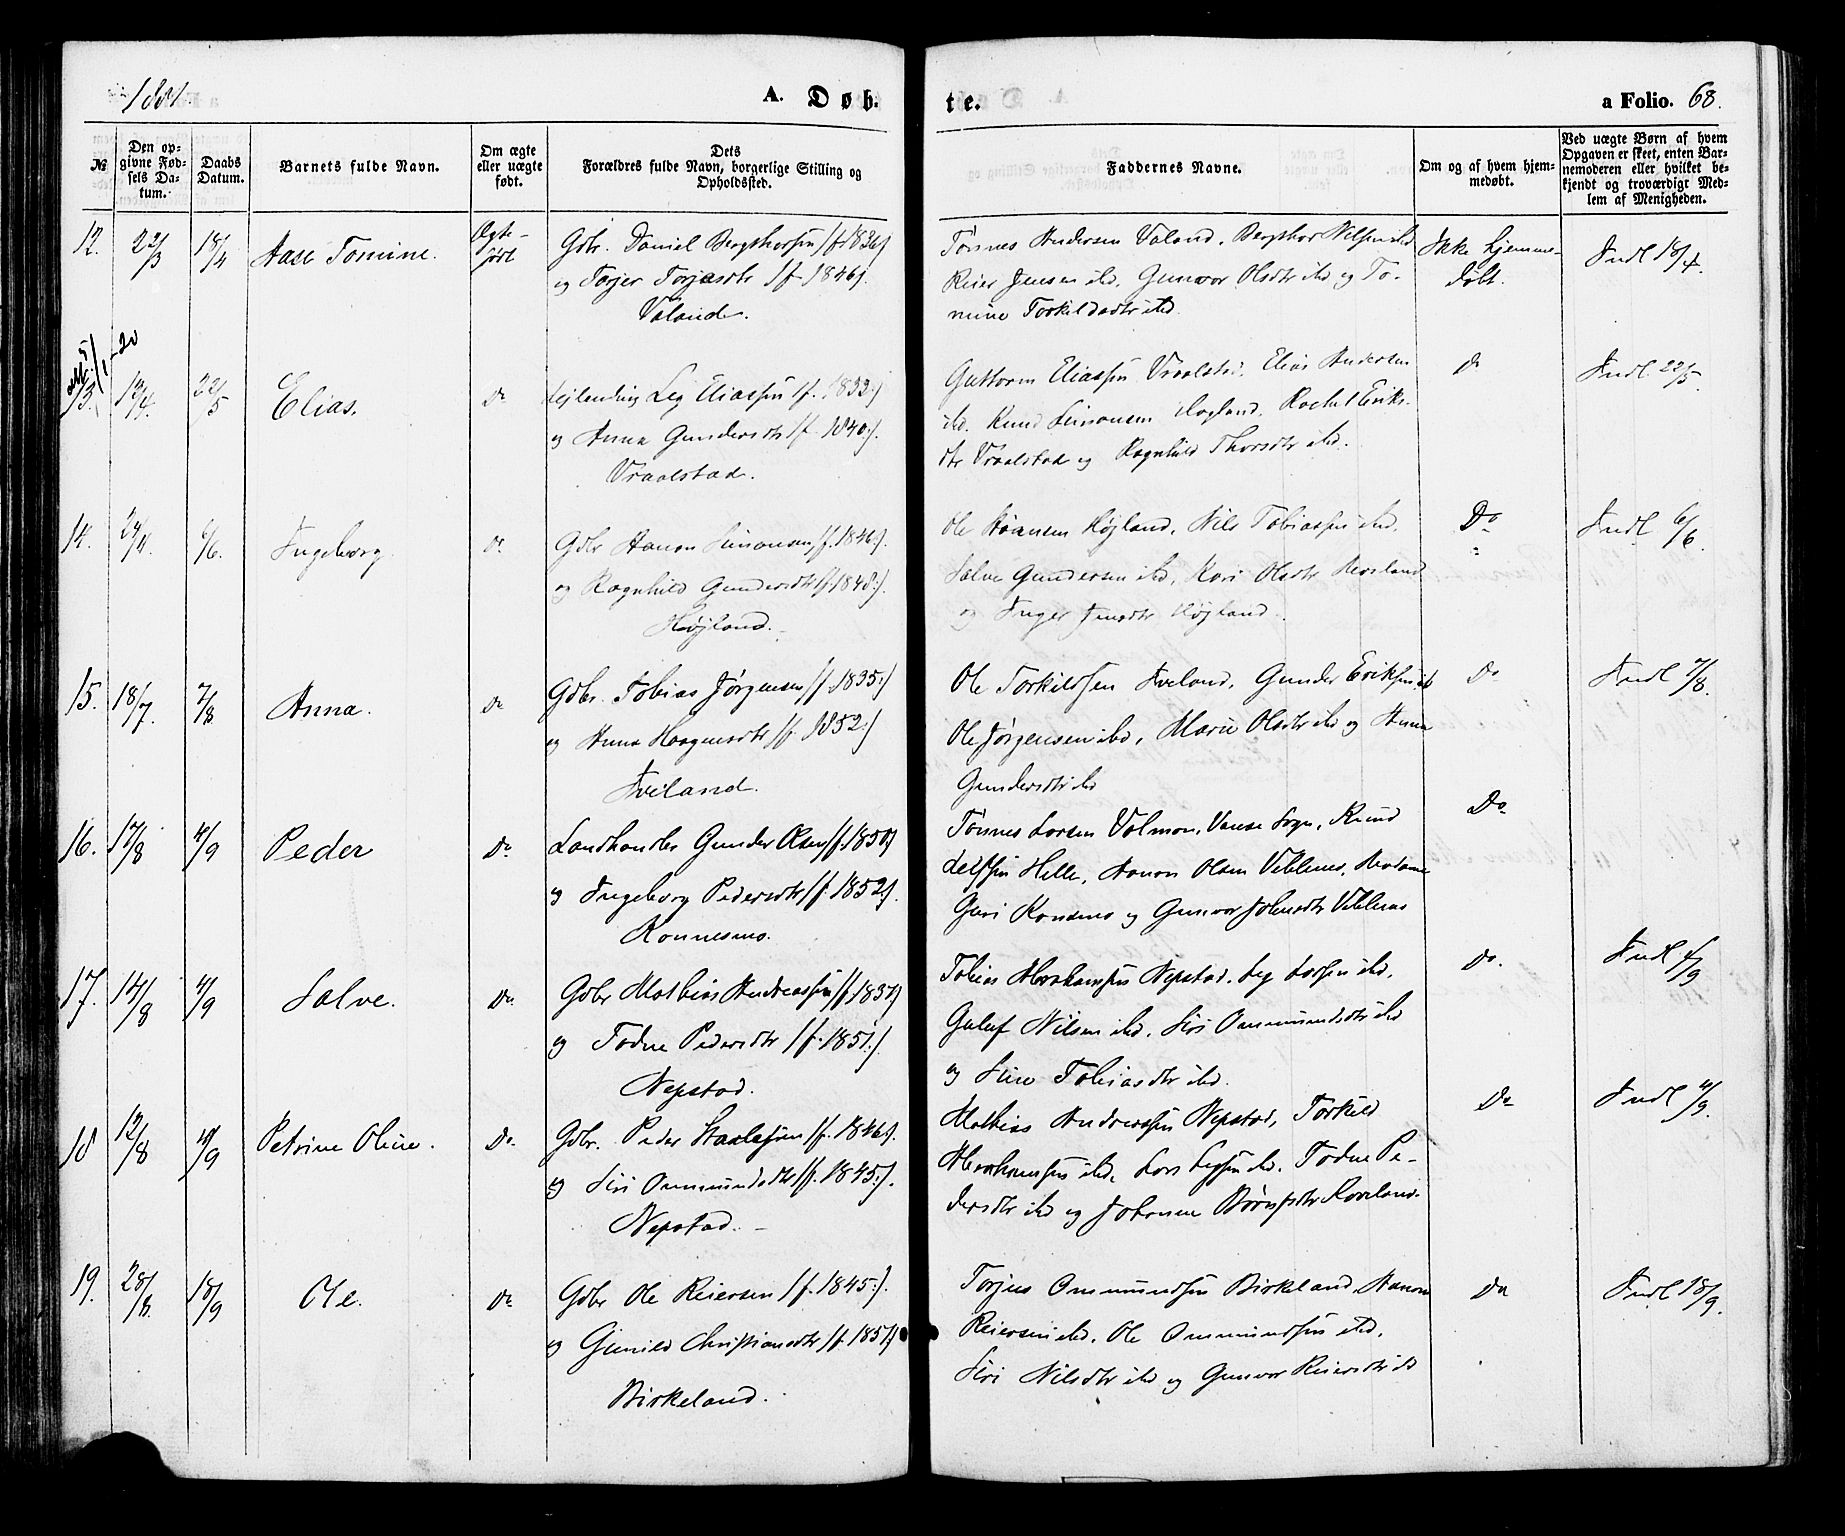 1881.
A. Døb-
te.
a Folio. 68.
№
Den op-
givne Fød-
sels Da-
tum.
Daabs
Datum.
Barnets fulde Navn.
Om ægte
eller uægte
født.
Dets
Forældres fulde Navn, borgerlige Stilling og
Opholdssted.
Faddernes Navne.
Om og af hvem hjem-
medøbt.
Ved uægte Børn af hvem
Opgaven er skeet, enten Bar-
nemoderen eller hvilket be-
kjendt og troværdigt Med-
lem af Menigheden.
12. 22/3 18/4 Aase Tomine. Ægte-
født
Gdbr. Daniel Bergthorsen /f. 1836/
og Torjer Torjesdtr /f. 1846/.
Valand.
Tønnes Andersen Valand, Bergthor Nilsen ibd.
Reier Jensen ibd, Gunvor Olsdtr ibd og To-
mine Torkildsdtr ibd.
Ikke hjemme-
døbt.
Indl 18/4.
13. 13/4 22/5 Elias. Do
Leilending Leg Eliassen /f. 1833/
og Anna Gundersdtr /f. 1840:/.
Vraalstad.
Guttorm Eliassen Vraalstad, Elias Andersen
ibd. Knud Simonsen Hogland, Rachel Eriks-
dtr Vraalstad og Ragnhild Thorsdtr ibd.
Do
Indl 22/5.
14. 24/4. 6/6. Ingeborg. Do
Gdbr Hanon Simonsen /f. 1846:/.
og Ragnhild Gundersdtr /f. 1848:/.
Højland.
Ole Hansen Højland, Nils Tobiassen ibd,
Salve Gundersen ibd, Kari Olsdtr
og Inger Jensdtr Højland.
Do
Indl 6/6.
15. 18/7. 7/8 Anna. Do
Gdbr. Tobias Jørgensen /f. 1835:/
og Anna Haagensdtr /f. 1852:/
Iveland.
Ole Torkildsen Iveland, Gunder Eriksen ibd
Ole Jørgensen ibd, Marie Olsdtr ibd og Anna
Gundersdtr ibd
Do
Indl 7/8.
16. 17/8 4/9 Peder Do
Landhandler Gunder Olsen /f. 1850/
og Ingeborg Pedersdtr /f. 1852/.
Konnesmo.
Tønnes Larsen Valmon, Vanse Sogn, Knud
Leifsen Helle, Hanon Olsen Viblemo, Madame
Guri Konsmo og Gunvor Johnsdtr Viblemo
Do
17. 14/8 4/9 Salve. Do
Gdbr Mathias Andreassen /f. 1837/
og Todne Pedersdtr /f. 1851:/.
Nepstad.
Tobias Abrahamsen Nepstad, Leg Larsen ibd,
Guluf Nilsen ibd, Siri Ommundsdtr ibd
og Sine Tobiasdtr ibd.
Do.
Indl 4/9
18 12/8 4/9 Petrine Oline. Do
Gdbr. Peder Staalesen /f. 1846/.
og Siri Ommundsdtr /f. 1845:/.
Nepstad.
Mathias Andreassen Nepstad, Torkild
Abrahamsen ibd, Lars Legsen ibd. Todne Pe-
dersdtr ibd og Johanne
Do
Indl 4/9.
19. 28/8. 18/9 Ole. Do
Gdbr Ole Reiersen /f. 1845:/.
og Gunild Christiansdtr /f. 1857/
Birkeland.
Torjus Ommundsen Birkeland, Hanon
Reiersen ibd. Ole Ommundsen ibd.
Siri Nilsdtr ibd og Gunvor Reiersdtr ibd
Do
Indl 18/9.